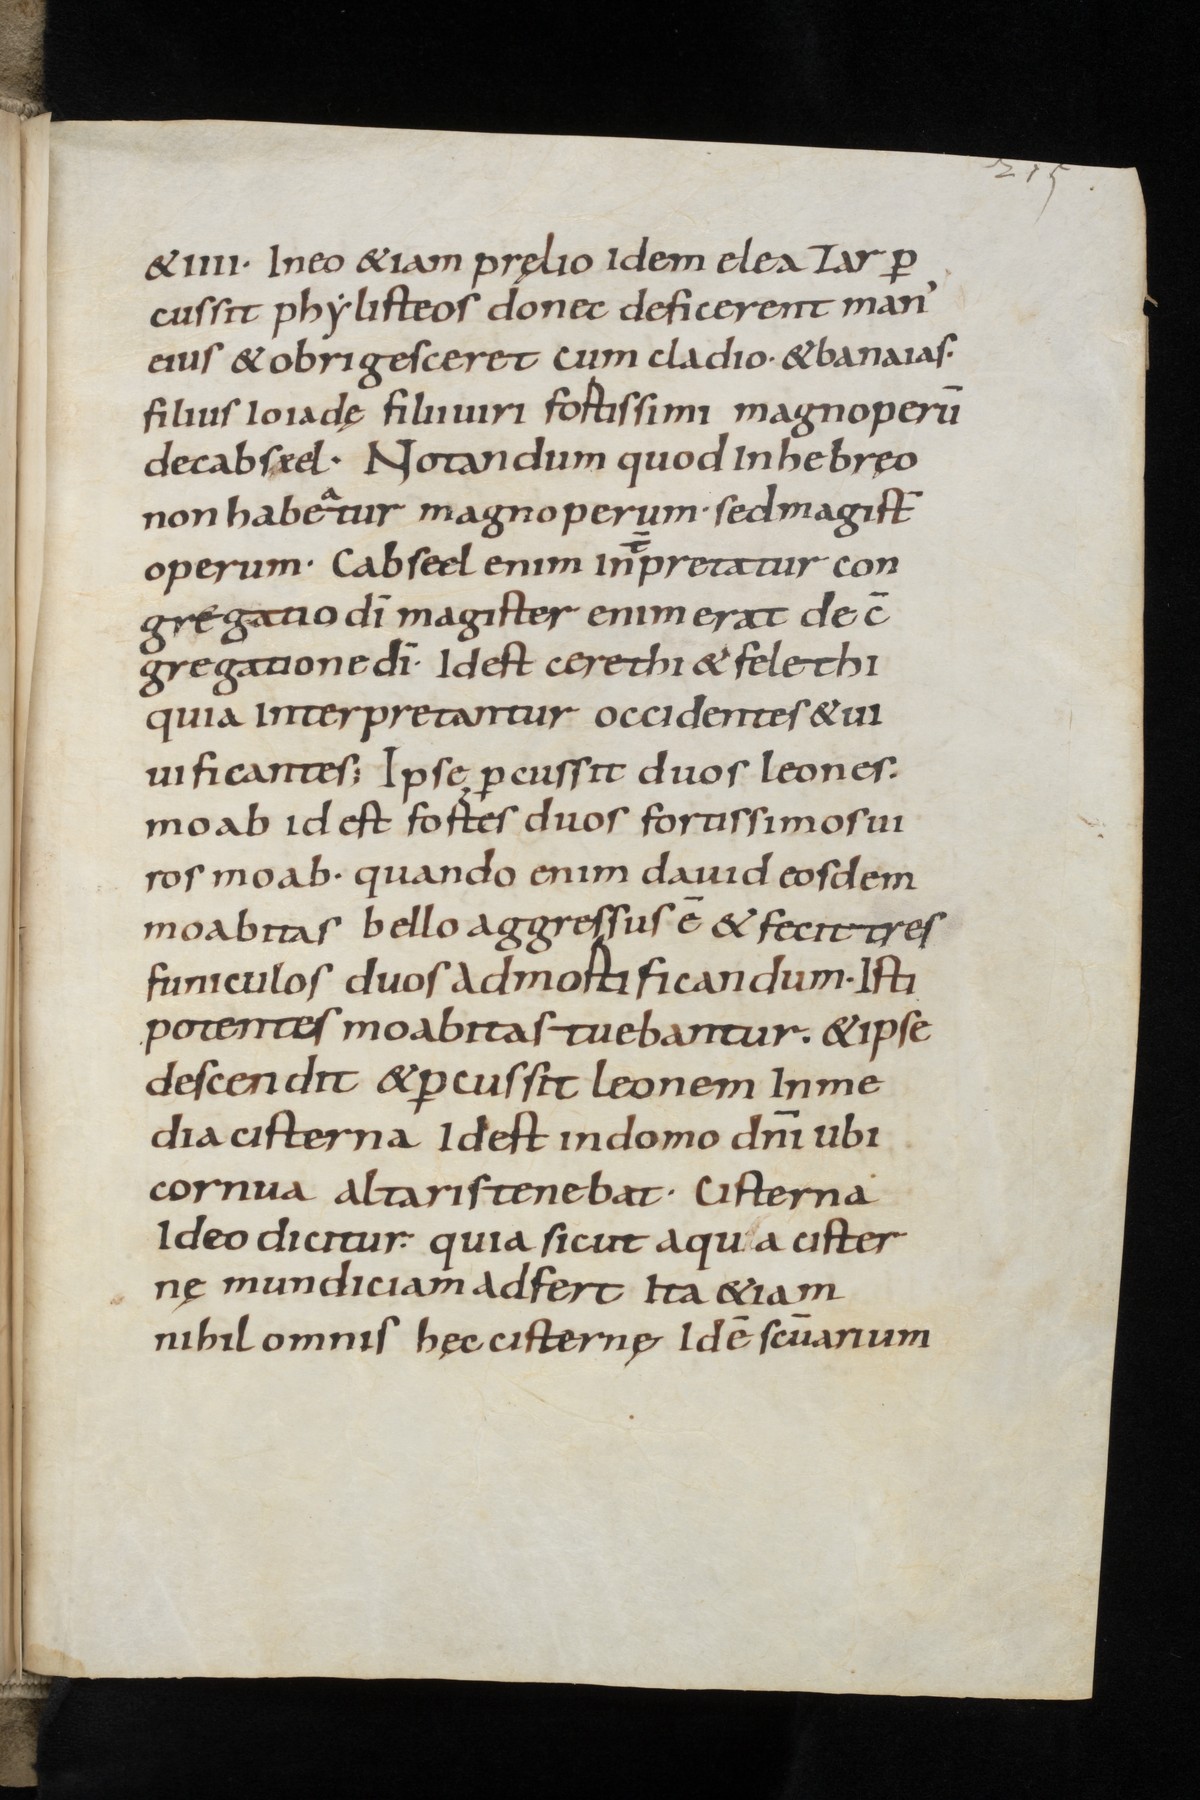 215
&IIII· Ineo &iam prelio Idem eleaZar ꝑ
cussit phẏlisteos donec deficerent man᾿
eius & obrigesceret cum cladio· & banaias·
filius Ioiadę filii uiri fortissimi magnoperū
decabseel· Notandum quod Inhebręo
non habeatur magnoperum· sed magist̄
operum· Cabseel enim int̄pretatur con
gregatio dī magister enim erat de c̄
gregatione dī· Idest cerethi & felethi
quia Interpretantur occidentes & ui
uificantes; Ipsę ꝑcussit duos leones·
moab id est fortes duos fortissimos ui
ros moab· quando enim dauid eosdem
moabitas bello aggressus ē & fecit tres
funiculos duos ad mortificandum· Isti
potentes moabitas tuebantur· & ipse
descendit & ꝑcussit leonem In me
dia cisterna Idest in domo dn̄i ubi
cornua altaris tenebat· Cisterna
Ideo dicitur· quia sicut aqua cister
nę mundiciam adfert Ita &iam
nihilomnis hęc cisternę Id ē scūarium